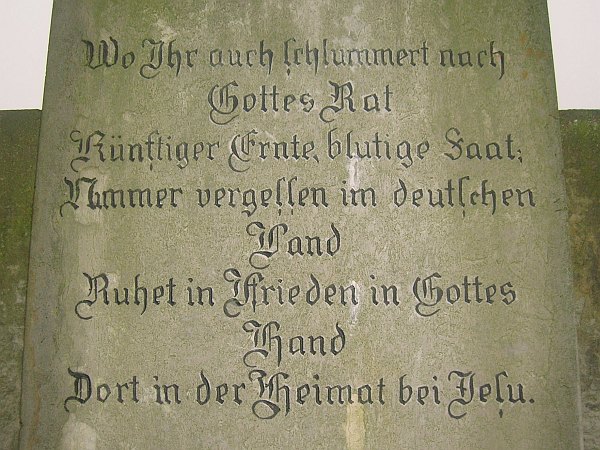 Wo Ihr auch schlummert nach
Gottes Rat
Künftiger Ernte, blutige Saat;
Nimmer vergessen im deutschen
Land
Ruhet in Frieden in Gottes
Hand
Dort in der Heimat bei Jesu.